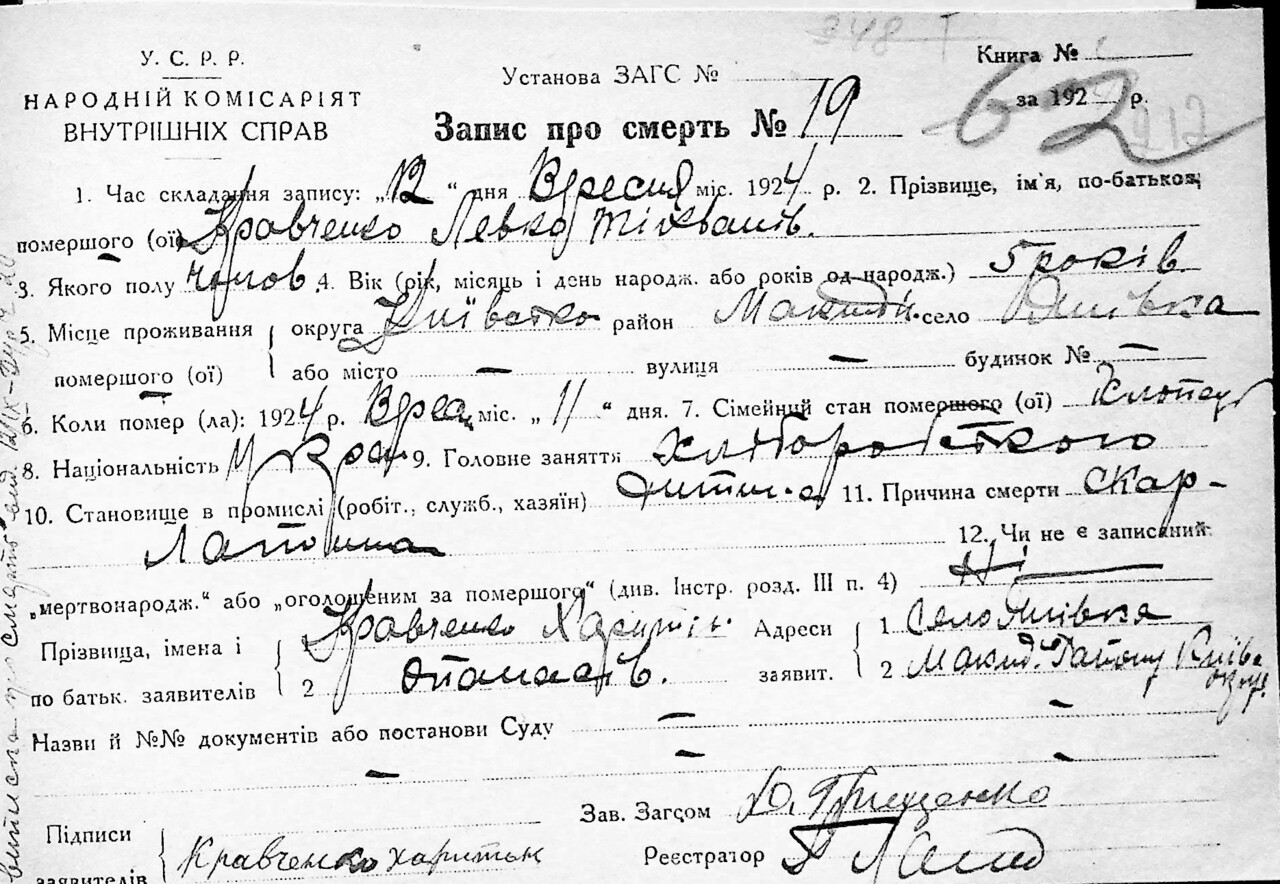 348 Т
У. С. Р. Р.
НАРОДНІЙ КОМІСАРІЯТ
ВНУТРІШНІХ СПРАВ
Установа ЗАГС №
Книга №
за 192 р.
62
212
Запис про смерть № 19
1. Час складання запису: „12“ дня Вересня міс. 1924 р. 2. Прізвище, ім'я, по-батькові,
помершого (ої) Кравченко Левко
3. Якого полу чолов 4. Вік (рік, місяць і день народж. або років од народж.) 5 років.
5. Місце проживання округа район село
помершого (ої) або місто — вулиця — будинок № —
6. Коли помер (ла): 1924 р. Верес міс. „11“ дня. 7. Сімейний стан помершого (ої) Хлопець
8. Національність Укра 9. Головне заняття
10. Становище в промислі (робіт., служб., хазяїн) дитина 11. Причина смерти Скар-
латина 12. Чи не є записаний
„мертвонародж.“ або „оголошеним за помершого“ (див. Інстр. розд. III п. 4) Ні —
Прізвища, імена і 1 Кравченко Харитін Адреси 1 Село
по батьк. заявителів 2 заявит. 2 Макар. Району Київс
окр.
Назви й №№ документів або постанови Суду — —
— — —
Зав. Загсом
Підписи
Кравченко Харитон
заявителів
Реєстратор